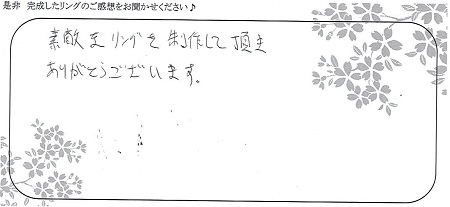 是非 完成したリングのご感想をお聞かせください♪
素敵なリングを制作して頂き
ありがとうございます。